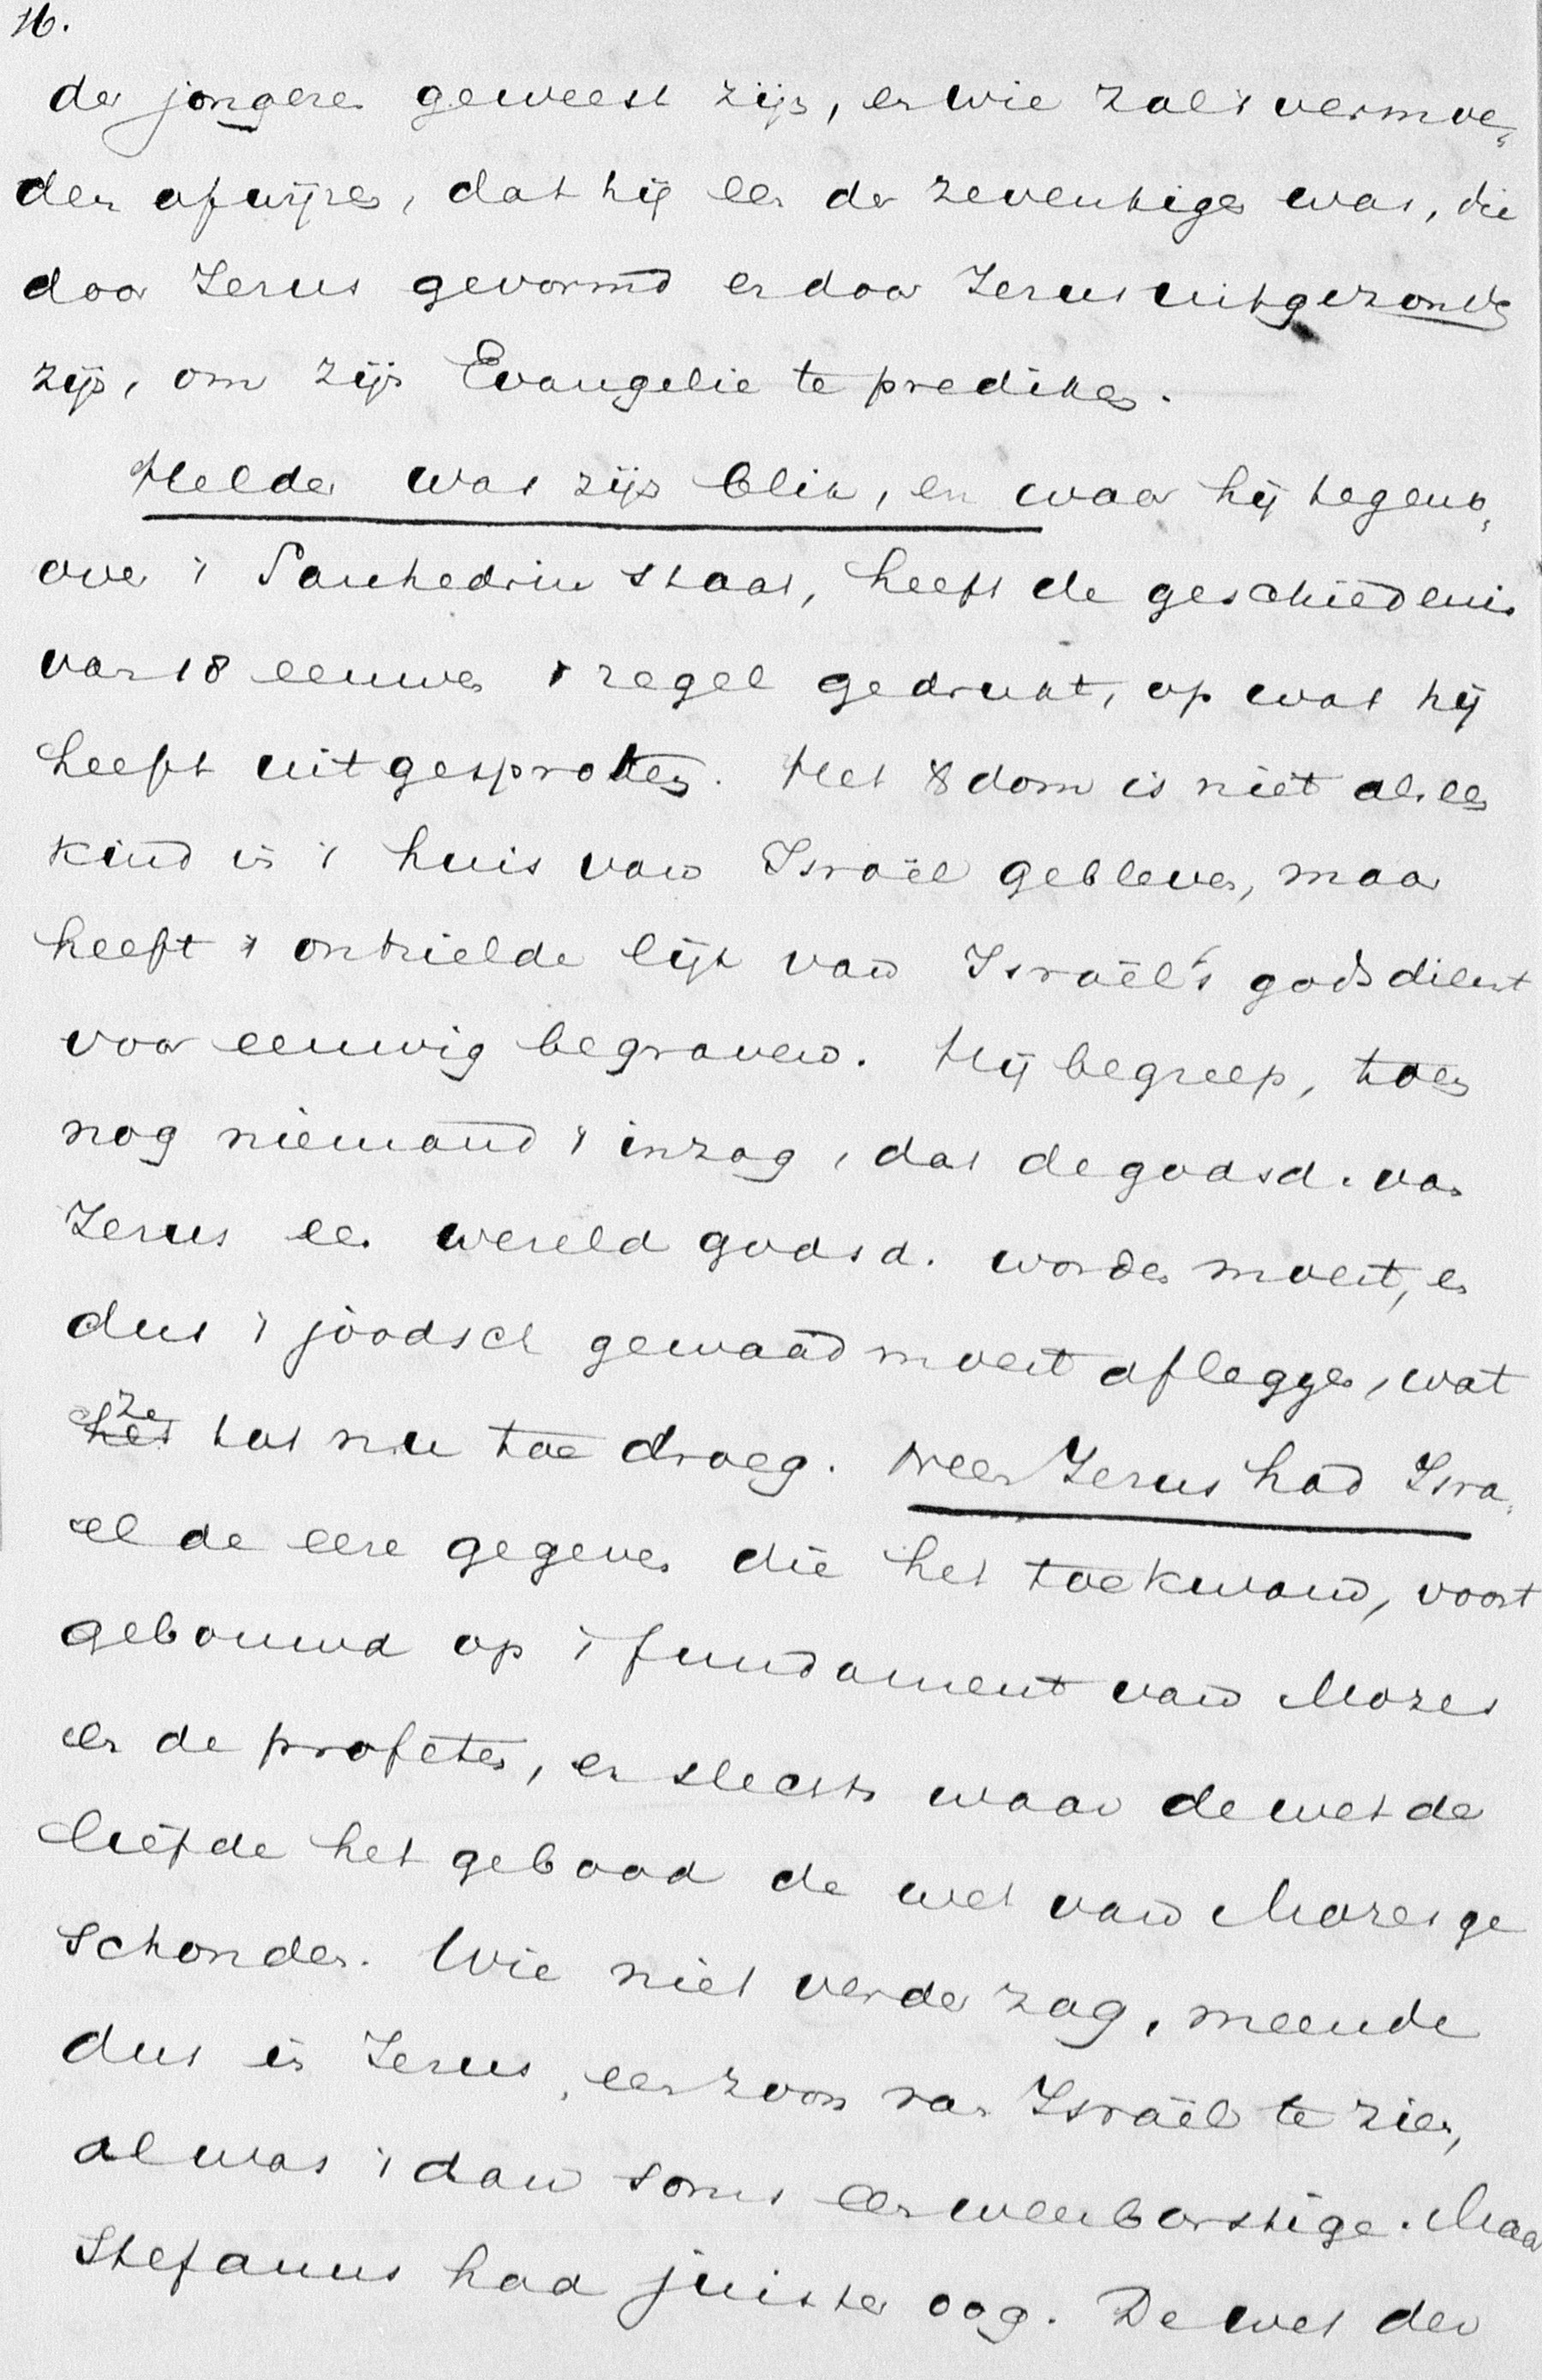 16.
der jongeren geweest zijn, en wie zal 't vermoe„
den afwijzen, dat hij een der zeventigen was, die
door Jezus gevormd en door Jezus uitgezonden
zijn, om zijn Evangelie te prediken.
Helder was zijn blik, en waar hij tegeno„
over 't Sanhedrin staat, heeft de geschiedenis
van 18 eeuwen 't zegel gedrukt, op wat hij
heeft uitgesproken. Het Xdom is niet als een
kind in 't huis van Israël gebleven, maar
heeft 't ontzielde lijk van Israël's godsdienst
voor eeuwig begraven. Hij begreep, toen
nog niemand 't inzag, dat de godsd. van
Jezus een wereld godsd. worden moest, en
dus 't joodsch gewaad moest afleggen, wat
ze tot nu toe droeg. Neen Jezus had Isra„
ël de eere gegeven die het toekwam, voort
gebouwd op 't fundament van Mozes
en de profeten, en slechts waar de wet der
liefde het gebood de wet van Mozes ge
schonden. Wie niet verder zag, meende
dus in Jezus, een zoon van Israël te zien,
al was 't dan soms een weerbarstige. Maar
Stefanus had juister oog. De wet der